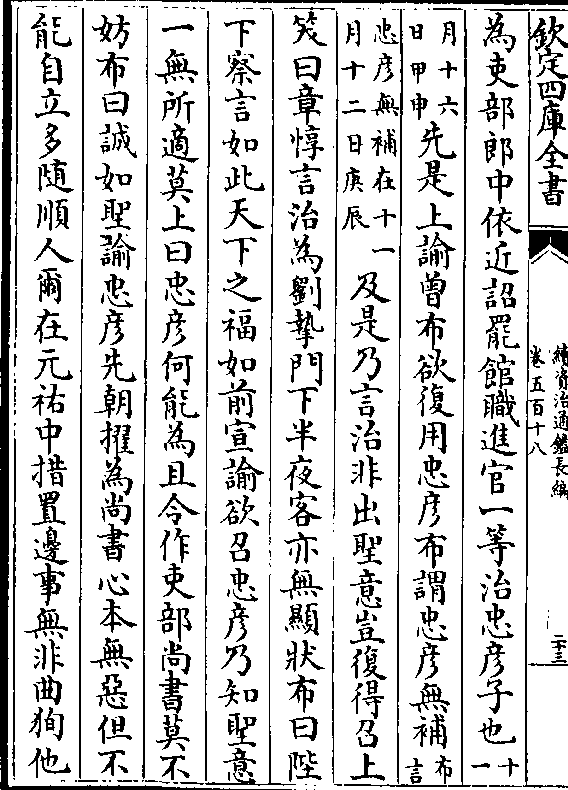 欽定四庫全書
續資治通鑑長編
卷五百十八
二十三
為吏部郎中依近詔罷館職進官一等治忠彥子也十一
月十六日甲申先是上諭曾布欲復用忠彥布謂忠彥無補布言
忠彥無補在十一月十二日庚辰及是乃言治非出聖意豈復得召上
笑曰章惇言治為劉摯門下半夜客亦無顯狀布曰陛
下察言如此天下之福如前宣諭欲召忠彥乃知聖意
一無所適莫上曰忠彥何能為且令作吏部尚書莫不
妨布曰誠如聖諭忠彥先朝擢為尚書心本無惡但不
能自立多随順人爾在元祐中措置邊事無非曲狥他